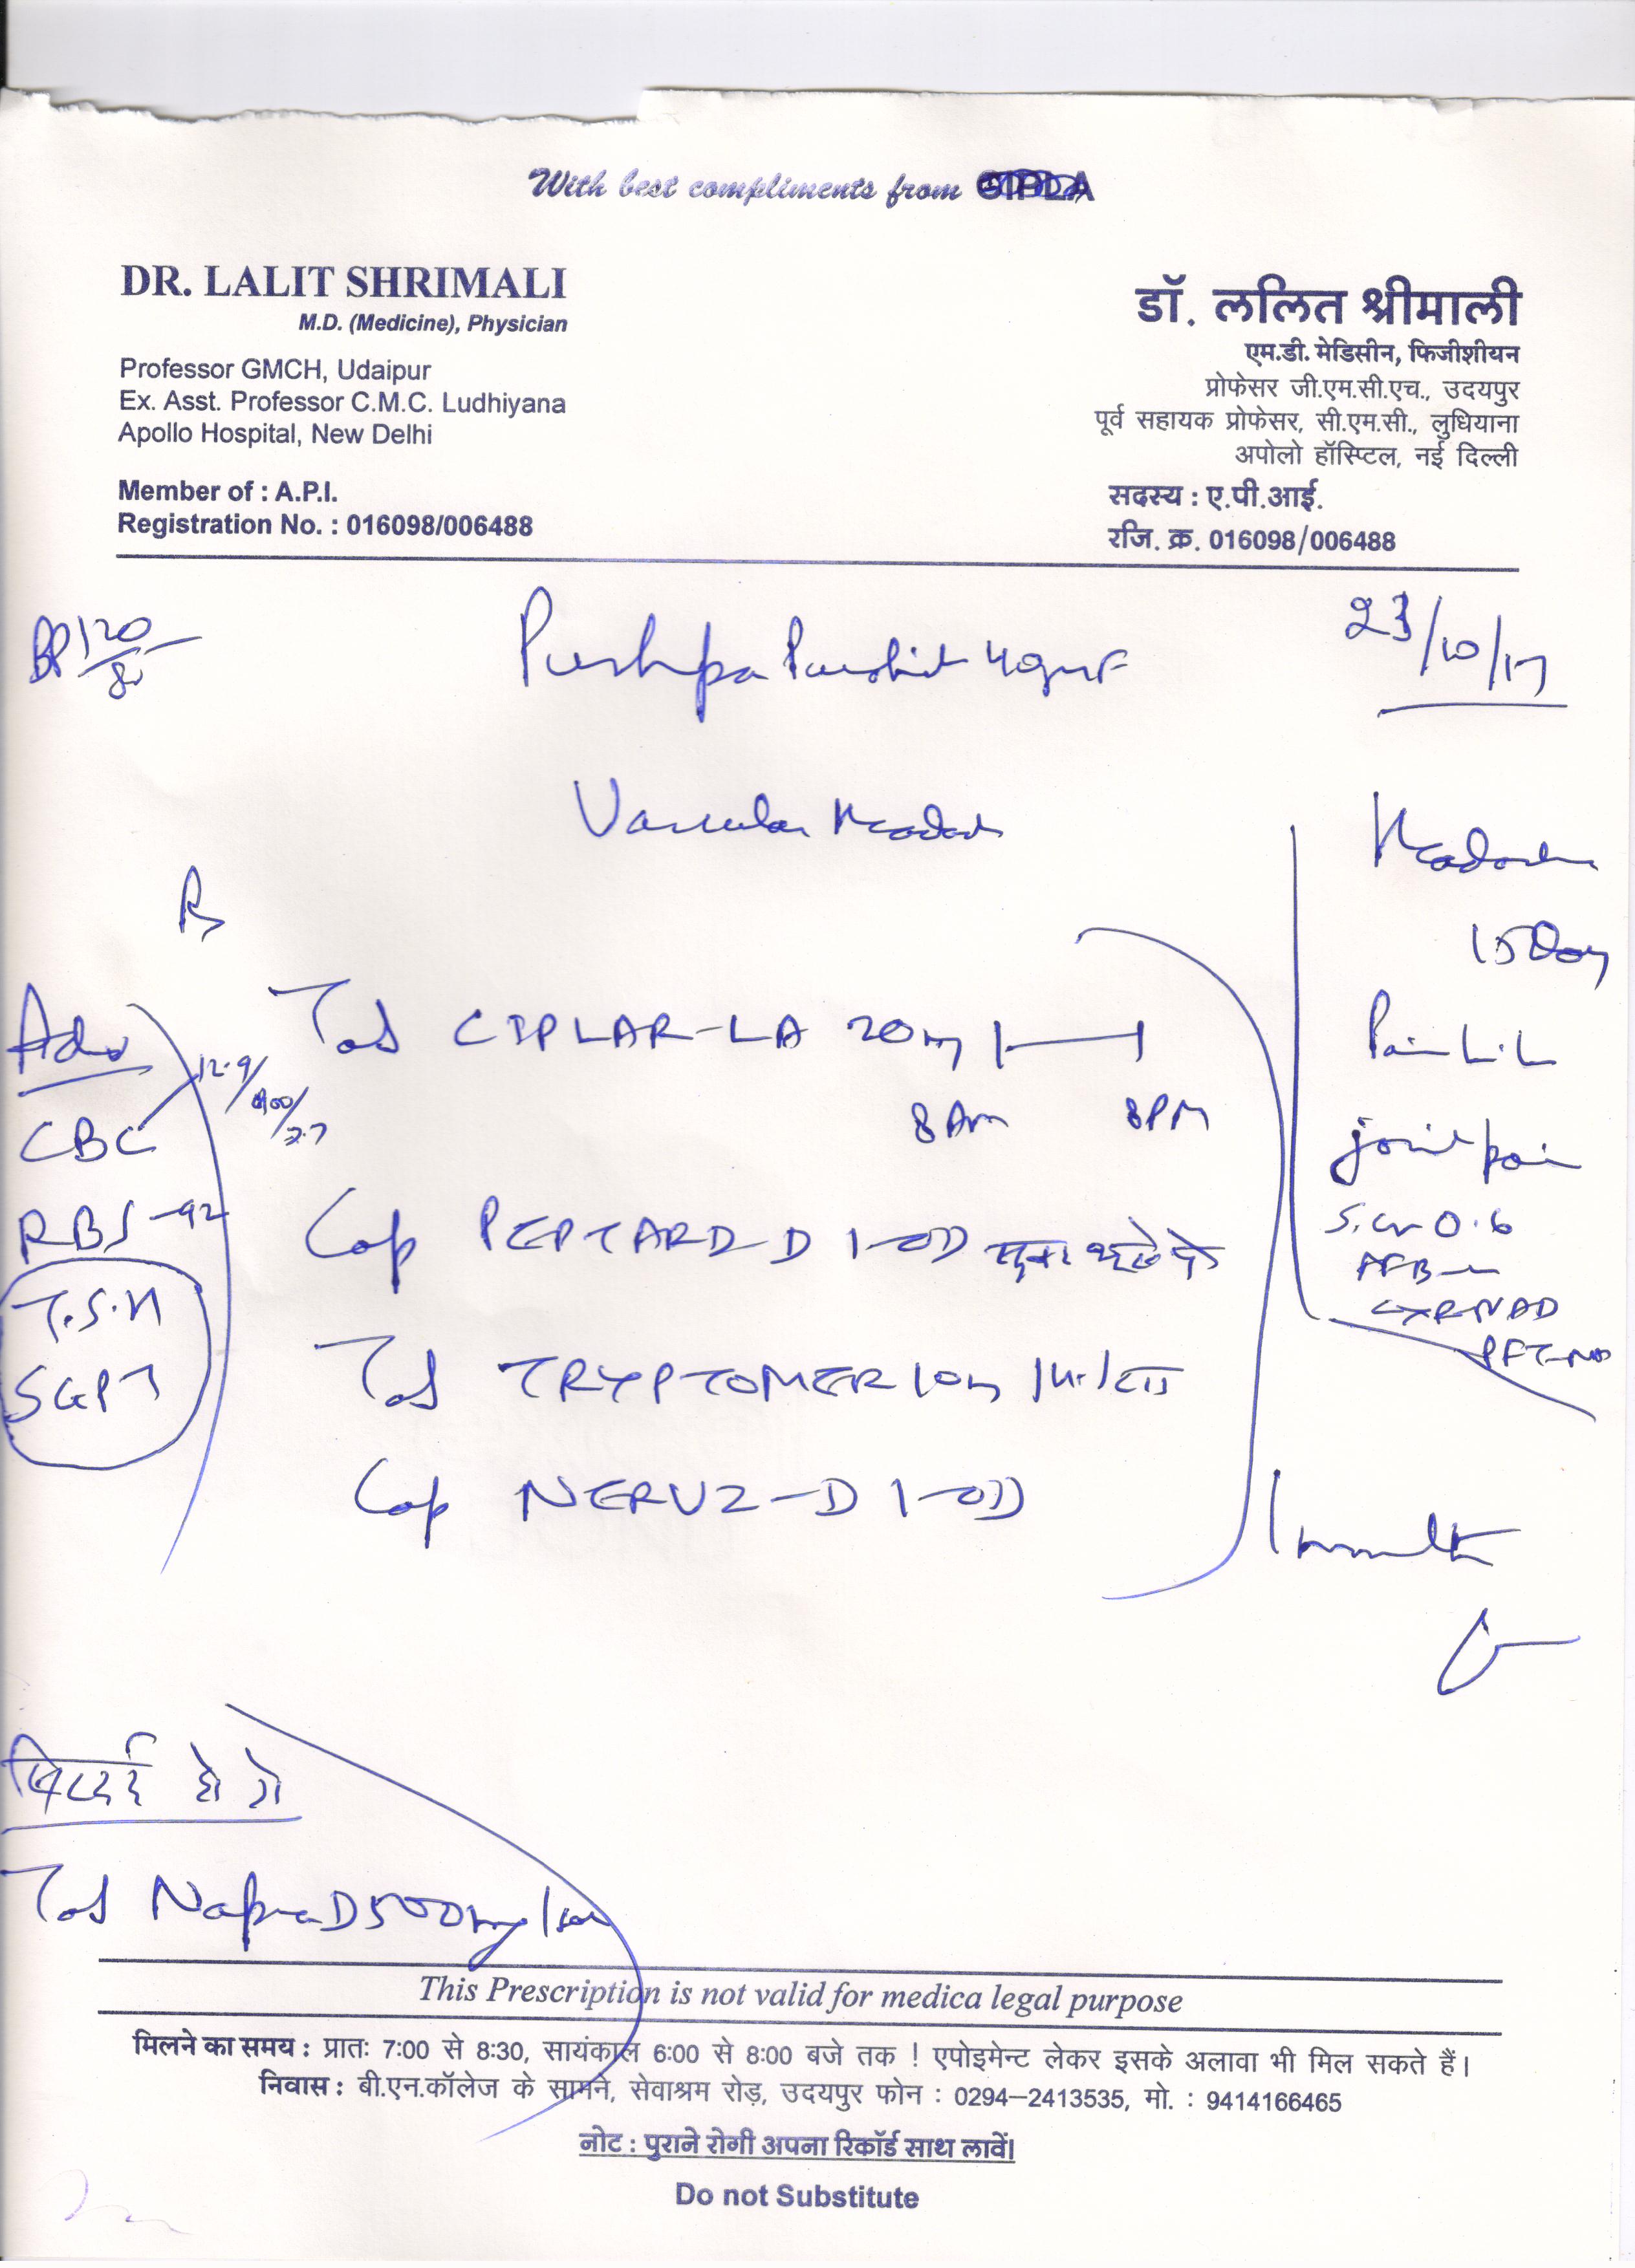 With best compliments from CIPLA
DR. LALIT SHRIMALI
M.D. (Medicine), Physician
Professor GMCH, Udaipur
Ex. Asst. Professor C.M.C. Ludhiyana
Apollo Hospital, New Delhi
Member of : A.P.I.
Registration No. : 016098/006488
डॉ. ललित श्रीमाली
एम.डी. मेडिसीन, फिजीशीयन
प्रोफेसर जी.एम.सी.एच., उदयपुर
पूर्व सहायक प्रोफेसर, सी.एम.सी., लुधियाना
अपोलो हॉस्पिटल, नई दिल्ली
सदस्य : ए.पी.आई.
रजि. क्र. 016098/006488
BP 120/80
Pushpa Purohit 49yr F
23/10/17
Vascular Headach
Headache
15 Day
Pain L.L
joint pain
S. Cr 0.6
AFB
CXR NAD
PFT
Rx
Adv
CBC 12.9/
RBS - 92
T.S.H
SGPT
Tab CIPLAR-LA 20mg 1 — 1
8 AM 8 PM
Cap PEPTARD-D 1-OD
Tab TRYPTOMER 10mg
Cap NERVZ-D 1-OD
1 month
सिरदर्द हो तो
Tab Napra D 500mg
This Prescription is not valid for medica legal purpose
मिलने का समय : प्रातः 7:00 से 8:30, सायंकाल 6:00 से 8:00 बजे तक ! एपोइमेन्ट लेकर इसके अलावा भी मिल सकते हैं।
निवास : बी.एन.कॉलेज के सामने, सेवाश्रम रोड़, उदयपुर फोन : 0294–2413535, मो. : 9414166465
नोट : पुराने रोगी अपना रिकॉर्ड साथ लावें।
Do not Substitute